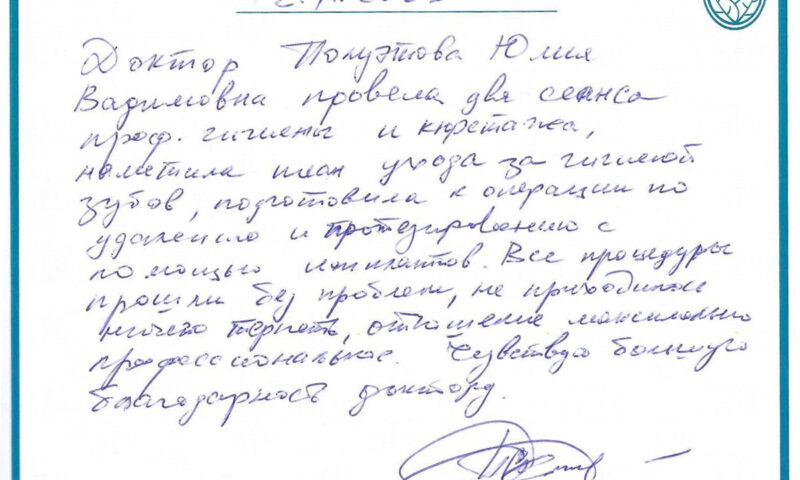 Доктор Полуэтова Юлия
Вадимовна провела два сеанса
проф. гигиены и кюретажа,
наметила план ухода за гигиеной
зубов, подготовила к операции по
удалению и протезированию с
помощью имплантов. Все процедуры
прошли без проблем, не приходилось
ничего терпеть, отношение максимально
профессиональное. Чувствую большую
благодарность доктору.